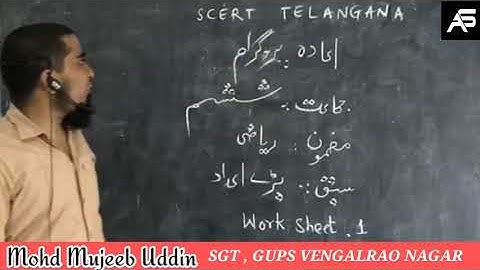 SCERT TELANGANA
اعادہ : پروگرام
جماعت :- ششم
مضمون : ریاضی
سبق : بڑے اعداد
Work Sheet . 1
Mohd Mujeeb Uddin SGT , GUPS VENGALRAO NAGAR